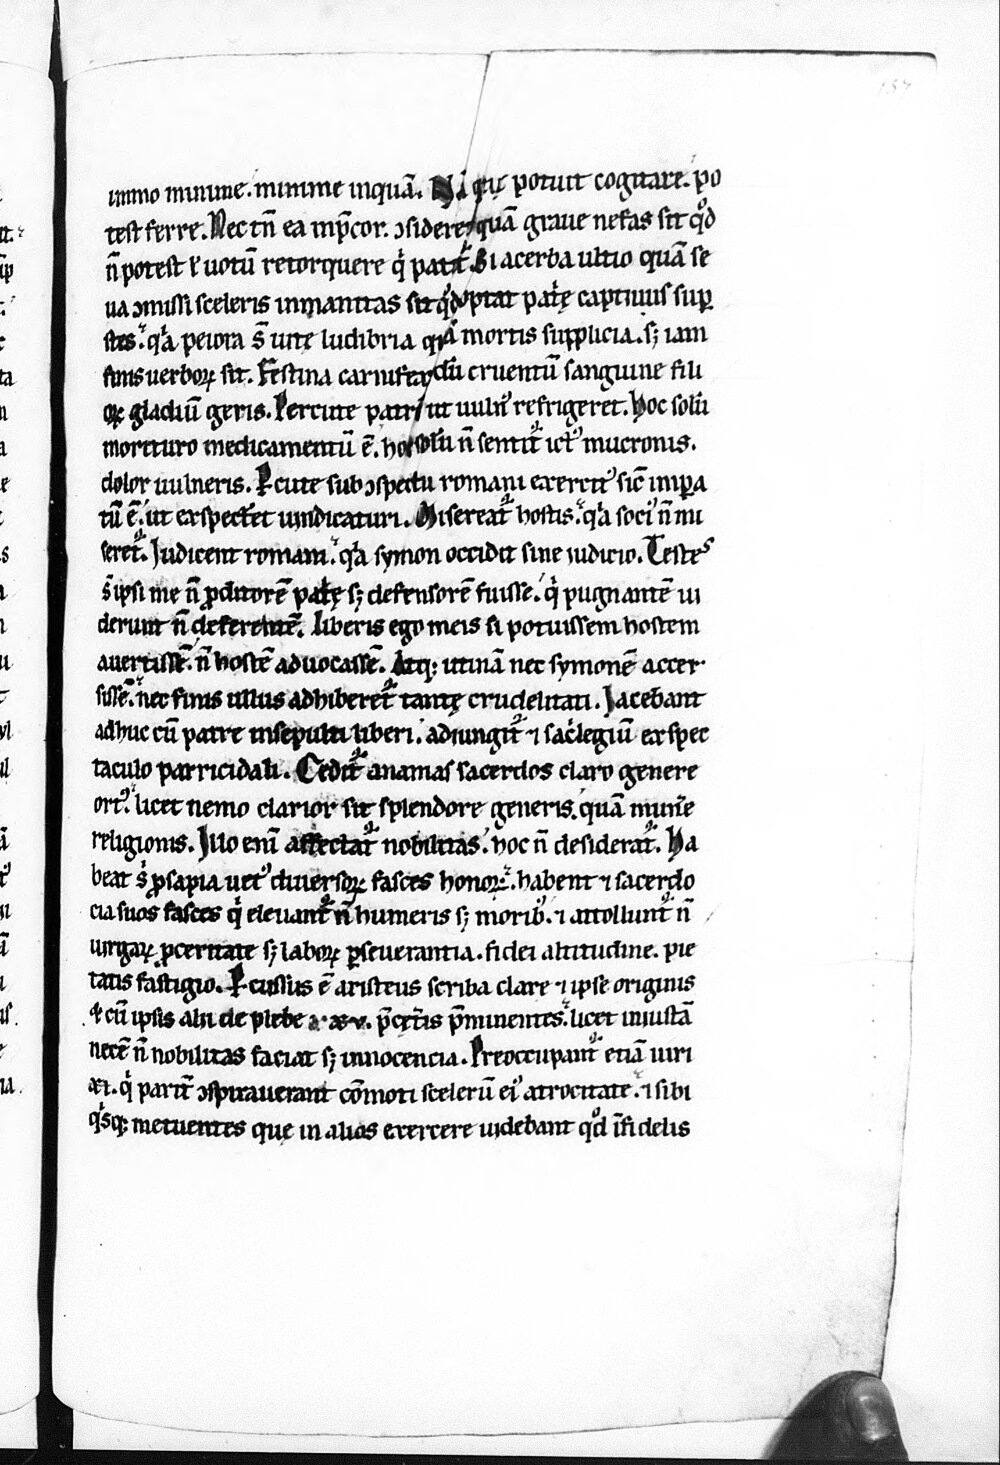 137
immo minime. minime inquā. Nā quę potuit cogitare. po
test ferre. Nec tn̄ ea imp̄cor. ɔsidere quā graue nefas sit qd̊
n̄ potest ł uotū retorquere q̇ patit᷑. Si acerba ultio quā se
ua ɔmissi sceleris inmanitas sit qd̊ optat pat̄ę captiuus sup̱
stes. qͣa peiora s̄ uitę ludibria quā mortis supplicia. sꝫ iam
finis uerboꝝ sit. Festina carnifex dū cruentū sanguine fili
oꝝ gladiū geris. Percute patrē ut uulnꝰ refrigeret. hoc solū
morituro medicamentū ē. hoc solū n̄ sentit᷑ ictꝰ mucronis.
dolor uulneris. P̱cute sub ɔspectu romani exercitꝰ sic̄ impa
tū ē. ut exspectet uindicaturi. Misereat᷑ hostis. qͣa sociꝰ n̄ mi
seret᷑. Judicent romani. qͣa symon occidit sine iudicio. Testes
s̄ ipsi me n̄ ꝓditorē pat̄ę sꝫ defensorē fuisse. q̇ pugnantē ui
derunt n̄ deferentē. Liberis ego meis si potuissem hostem
auertissē. n̄ hostē aduocassē. Atqꝫ utinā nec symonē accer
sissē. nec finis ullus adhiberet᷑ tantę crudelitati. Jacebant
adhuc cū patre insepulti liberi. adiungit᷑ ⁊ sac̍legiū ex spec
taculo parricidali. Cedit᷑ anamas sacerdos claro genere
ortꝰ. licet nemo clarior sit splendore generis. quā mun̄e
religionis. Illo eni̅ affectat᷑ nobilitas. hoc n̄ desiderat᷑. Ha
beat s̍ ꝓsapia uetꝰ diuersoꝝ fasces honoꝝ. habent ⁊ sacerdo
cia suos fasces q̇ eleuant᷑ n̄ humeris sꝫ moribꝰ. ⁊ attollunt᷑ n̄
uirgaꝝ ꝓceritate sꝫ laboꝝ ꝑseuerantia. fidei altitudine. pie
tatis fastigio. P̱cussus ē aristeus scriba clare ⁊ ipse originis
⁊ cū ipsis alii de plebe p̄cęt̄is p̄minentes. licet iniustā
necē n̄ nobilitas faciat sꝫ innocencia. Preoccupant᷑ etiā uiri
.x. q̇ parit᷑ ɔspirauerant cōmoti scelerū eiꝰ atrocitate. ⁊ sibi
q̍sqꝫ metuentes que in alios exercere uidebant qd̊ īfidelis